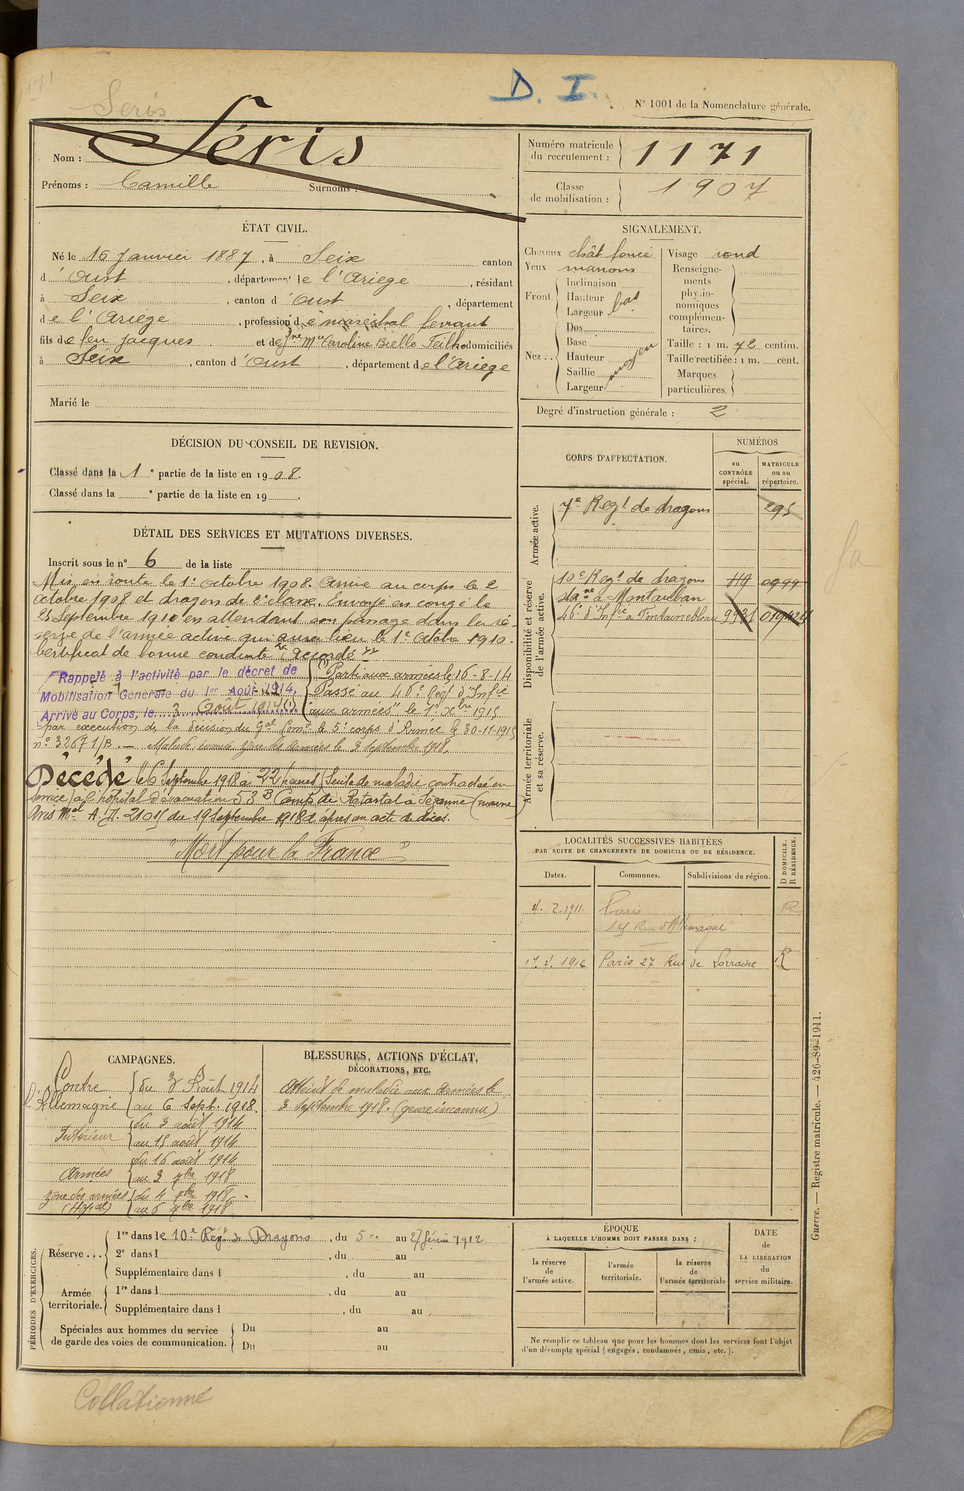 1171
Seris
D. I.
N° 1001 de la Nomenclature générale.
Nom : Séris
Prénoms : Camille Surnoms :
Numéro matricule du recrutement : 1171
Classe de mobilisation : 1907
ÉTAT CIVIL.
Né le 16 Janvier 1887, à Seix canton
d'Oust, département de l'Ariege, résidant
à Seix, canton d'Oust, département
de l'Ariege, profession de maréchal ferrant
fils de feu Jacques et de Caroline Bielle domiciliés
à Seix, canton d'Oust, département de l'Ariege
Marié le
SIGNALEMENT.
Cheveux chât foncé
Yeux marrons
Front Inclinaison
Hauteur bas
Largeur
Nez .. Dos
Base
Hauteur moyen
Saillie
Largeur
Visage rond
Renseignements physionomiques complémentaires.
Taille : 1 m. 72 centim.
Taille rectifiée : 1 m. cent.
Marques particulières.
Degré d'instruction générale : 2
DÉCISION DU CONSEIL DE REVISION.
Classé dans la 1e partie de la liste en 1908.
Classé dans la e partie de la liste en 19 .
DÉTAIL DES SERVICES ET MUTATIONS DIVERSES.
Inscrit sous le n° 6 de la liste
Mis en route le 1er octobre 1908. Arrivé au corps le 2
octobre 1908 et dragon de 2e classe. Envoyé en congé le
25 septembre 1910 en attendant son passage dans la ré-
serve de l'armée active qui aura lieu le 1er octobre 1910.
Certificat de bonne conduite Accordé
Rappelé à l'activité par le décret de
Mobilisation Générale du 1er Août 1914,
Arrivé au Corps, le 3 Août 1914 (1)
(1) Parti aux armées le 16-8-14
Passé au 46e Reg. d'Infie
"aux armées" le 1er Xbre 1915
par exécution de la décision du Gal Comt le 5e corps d'Armée le 30-11-1915
n° 3267 1/B. — Malade évacué zone des armées le 3 septembre 1918.
Décédé le 6 Septembre 1918 à 22 heures (Suite de maladie contractée en
service) à l'hôpital d'évacuation 53 B Camp de Retortat à Sézanne (Marne)
Avis Mel A. D. 2101 du 19 Septembre 1918 d'après un acte de décès.
"Mort pour la France"
CORPS D'AFFECTATION.
NUMÉROS
au CONTRÔLE spécial.
MATRICULE ou au répertoire.
Armée active.
7e Regt de dragons 295
Disponibilité et réserve de l'armée active.
10e Regt de dragons 0999
à Montauban
46e d'Infie à Fontainebleau
Armée territoriale et sa réserve.
LOCALITÉS SUCCESSIVES HABITÉES
PAR SUITE DE CHANGEMENTS DE DOMICILE OU DE RÉSIDENCE.
Dates. Communes. Subdivisions de région. D DOMICILE. R RÉSIDENCE.
4. 2. 1911. Paris R
Rue d'Allemagne
1912 Paris 27 Rue de Lorraine R
CAMPAGNES.
Contre l'Allemagne du 3 Août 1914
au 6 Sept. 1918.
Intérieur du 3 août 1914
au 15 août 1914
Armées du 16 août 1914
au 3 7bre 1918
Zone des armées du 4 7bre 1918
(Hôpal) au 6 7bre 1918
BLESSURES, ACTIONS D'ÉCLAT,
DÉCORATIONS, ETC.
Atteint de maladie aux armées le
3 Septembre 1918. (genre inconnu)
PÉRIODES D'EXERCICES.
Réserve ... 1re dans le 10e Regt de Dragons, du 5 au 27 février 1912
2e dans l , du au
Supplémentaire dans l , du au
Armée territoriale. 1re dans l , du au
Supplémentaire dans l , du au
Spéciales aux hommes du service de garde des voies de communication. Du au
Du au
ÉPOQUE
À LAQUELLE L'HOMME DOIT PASSER DANS :
la réserve de l'armée active.
l'armée territoriale.
la réserve de l'armée territoriale
DATE de LA LIBÉRATION du service militaire.
Ne remplir ce tableau que pour les hommes dont les services font l'objet
d'un décompte spécial (engagés, condamnés, omis, etc.).
Guerre. — Registre matricule. — 426-89-1911.
Collationné